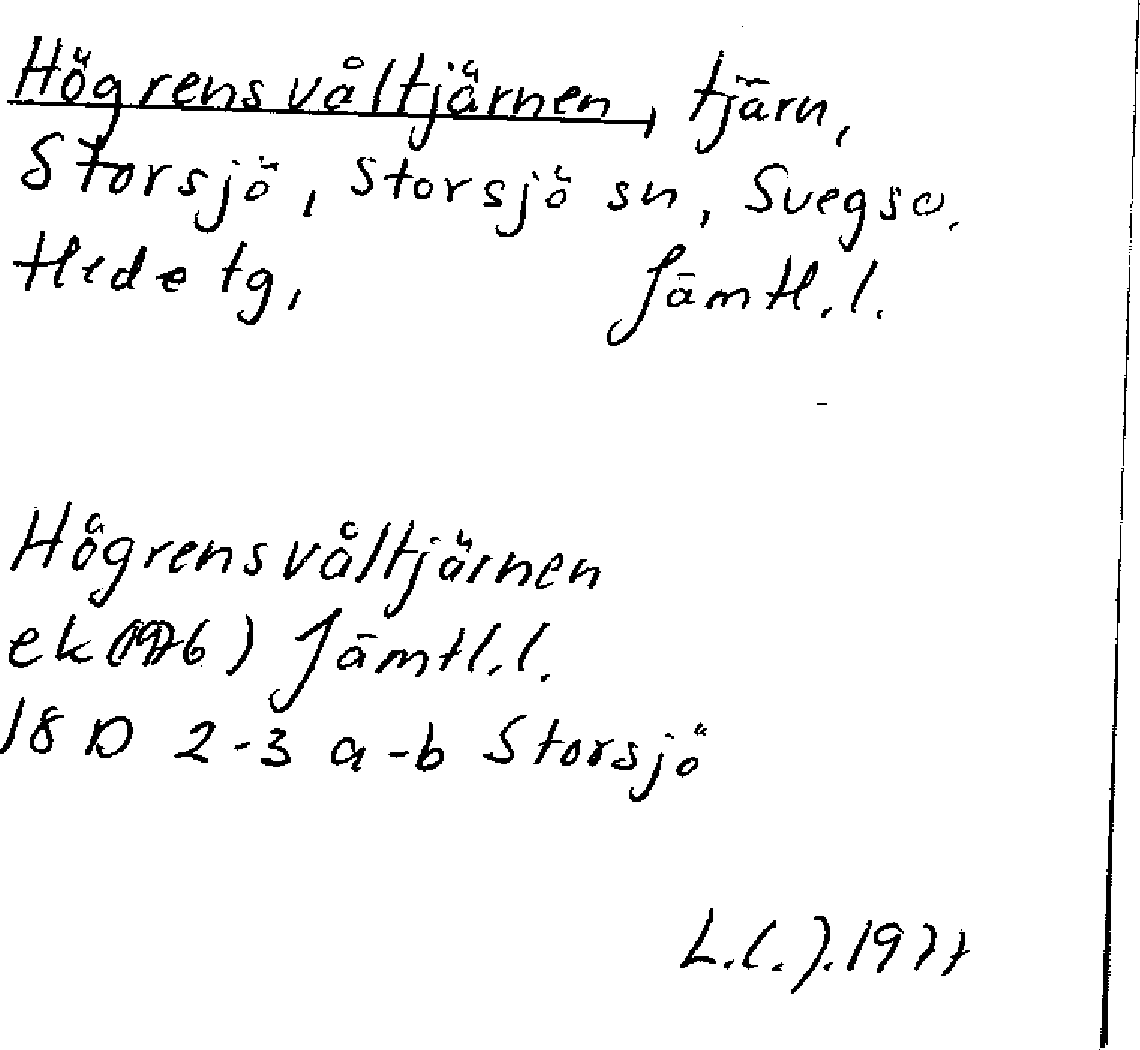 Högrensvåltjärnen, tjärn,
Storsjö, Storsjö sn, Svegs o.
Hede tg, Jämtl.l.
Högrensvåltjärnen
ek (1976) Jämtl.l.
18 D 2-3 a-b Storsjö
1977